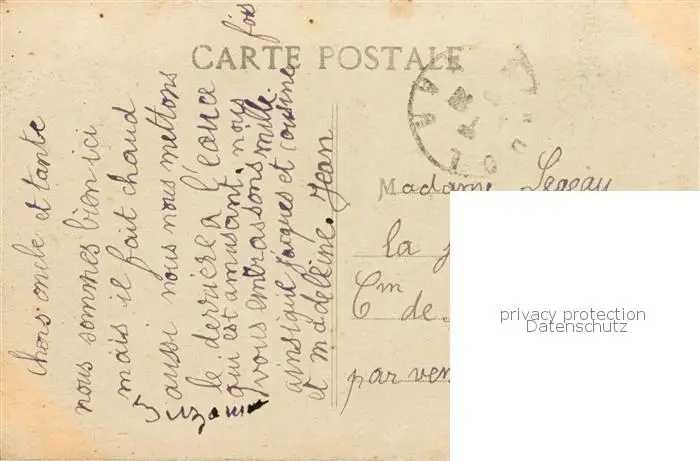 CARTE POSTALE
chers oncle et tante
nous sommes bien ici
mais il fait chaud
aussi nous nous mettons
le derriere a l'eau ce
qui est amusant. nous
vous embrassons mille fois
ainsi que jacques et cousine
et madeleine. Jean
Suzanne
Madame Legeay
la
Cm de
par ven
privacy protection
Datenschutz